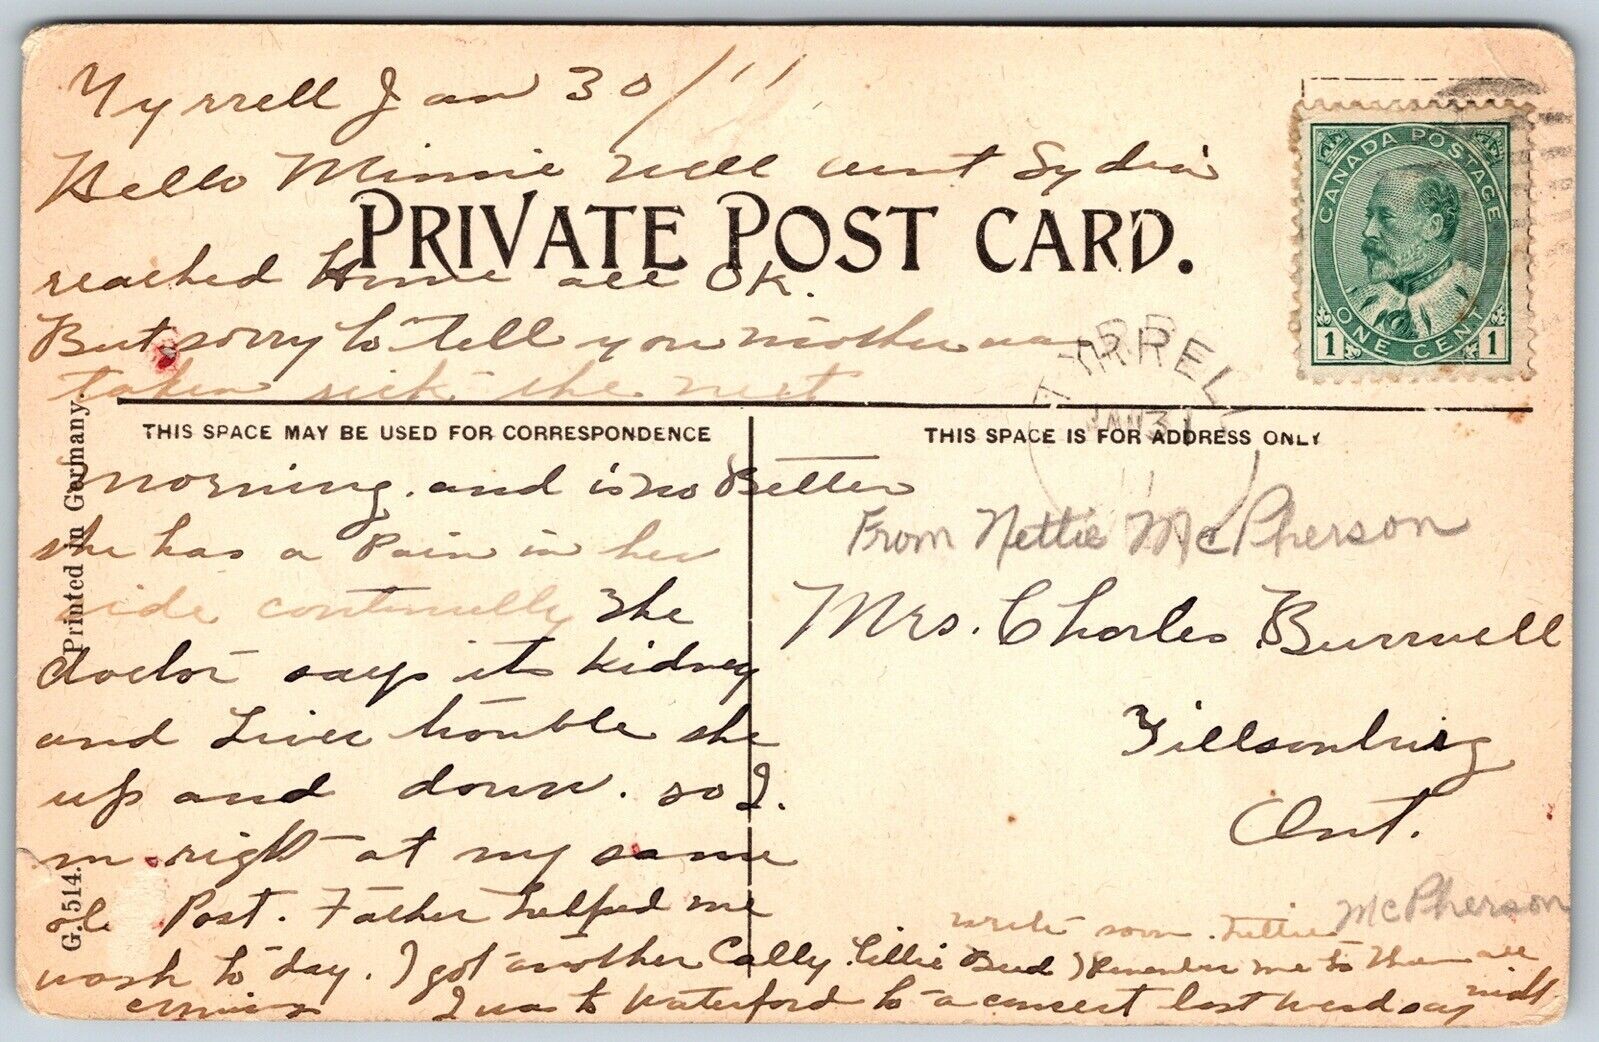 Tyrrell Jan 30/11
Hello Minnie well aunt Lydia
PRIVATE POST CARD.
reached Home all OK.
But sorry to tell you mother was
taken sick the next
THIS SPACE MAY BE USED FOR CORRESPONDENCE
morning. and is no Better
she has a Pain in her
side continuelly The
doctor says its kidney
and Liver trouble she
up and down. so I.
m right at my same
ole Post. Father helped me
wash to day. I got another Cally
I was to Waterford to a concert last Wendsay night
Printed in Germany.
G. 514.
CANADA POSTAGE
1 ONE CENT 1
TYRRELL
JAN 31
11
THIS SPACE IS FOR ADDRESS ONLY
From Nettie McPherson
Mrs. Charles Burwell
Tillsonburg
Ont.
write soon. Nettie McPherson
Remember me to Them all